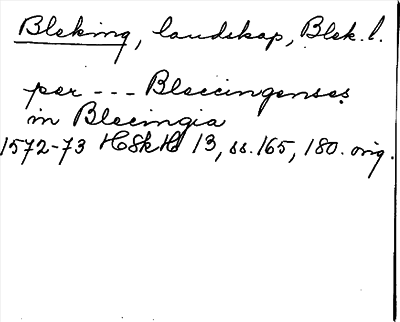 Bleking, landskap, Blek. l.
per --- Bleccingenses
in Blecingia
1572-73 HSkH 13, ss. 165, 180. orig.